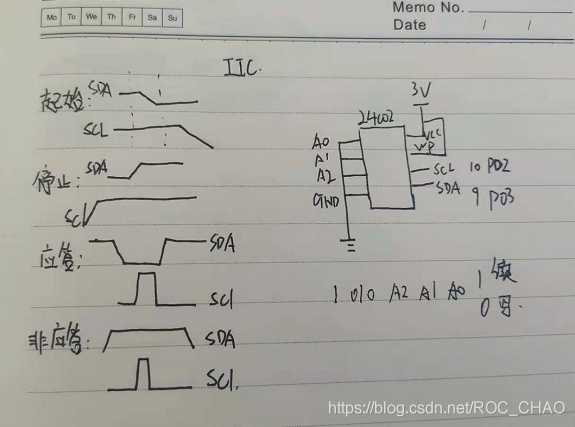 Memo No.
Mo Tu We Th Fr Sa Su
Date / /
IIC.
起始: SDA
SCL
停止: SDA
SCl
应答: SDA
SCl
非应答: SDA
SCl.
3V
24C02
A0
A1
A2
GND
VCC
WP
SCL 10 PD2
SDA 9 PD3
1 010 A2 A1 A0 1 读
0 写.
https://blog.csdn.net/ROC_CHAO